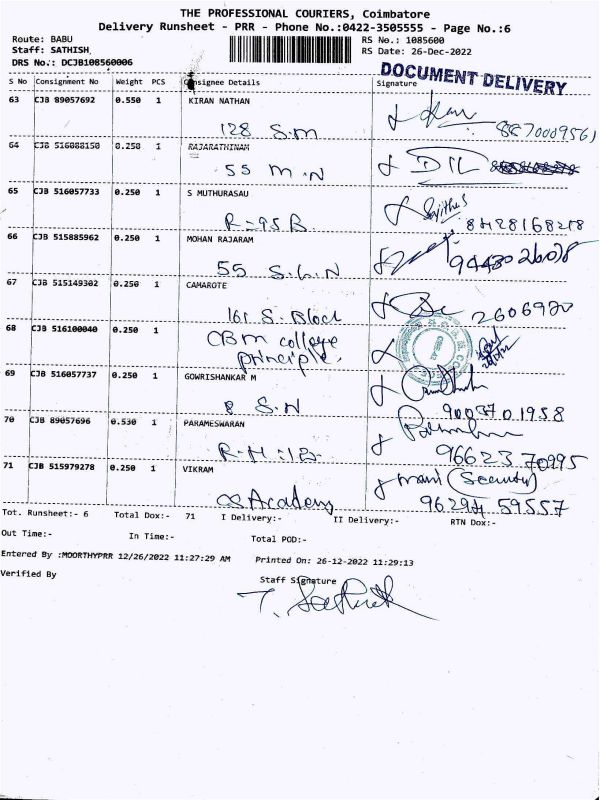 THE PROFESSIONAL COURIERS, Coimbatore
Delivery Runsheet - PRR - Phone No.:0422-3505555 - Page No.:6
Route: BABU
RS No.: 1085600
Staff: SATHISH,
RS Date: 26-Dec-2022
DRS No.: DCJB108560006
DOCUMENT DELIVERY
S No Consignment No Weight PCS Consignee Details Signature
63 CJB 89057692 0.550 1 KIRAN NATHAN
128 S.M 8870009561
64 CJB 516088150 0.250 1 RAJARATHINAM
55 M.N DIL
65 CJB 516057733 0.250 1 S MUTHURASAU
R-95 B. 8428168278
66 CJB 515885962 0.250 1 MOHAN RAJARAM
55 S.L.N
67 CJB 515149302 0.250 1 CAMAROTE
161 S. Block 2606920
68 CJB 516100040 0.250 1
CBM college
principle.
69 CJB 516057737 0.250 1 GOWRISHANKAR M
8 S.N 9003701958
70 CJB 89057696 0.530 1 PARAMESWARAN
R.H:1B 9662370995
71 CJB 515979278 0.250 1 VIKRAM mani (Security)
CS Academy 96294 59557
Tot. Runsheet:- 6 Total Dox:- 71 I Delivery:- II Delivery:- RTN Dox:-
Out Time:- In Time:- Total POD:-
Entered By :MOORTHYPRR 12/26/2022 11:27:29 AM Printed On: 26-12-2022 11:29:13
Verified By
Staff Signature
T. Sathish